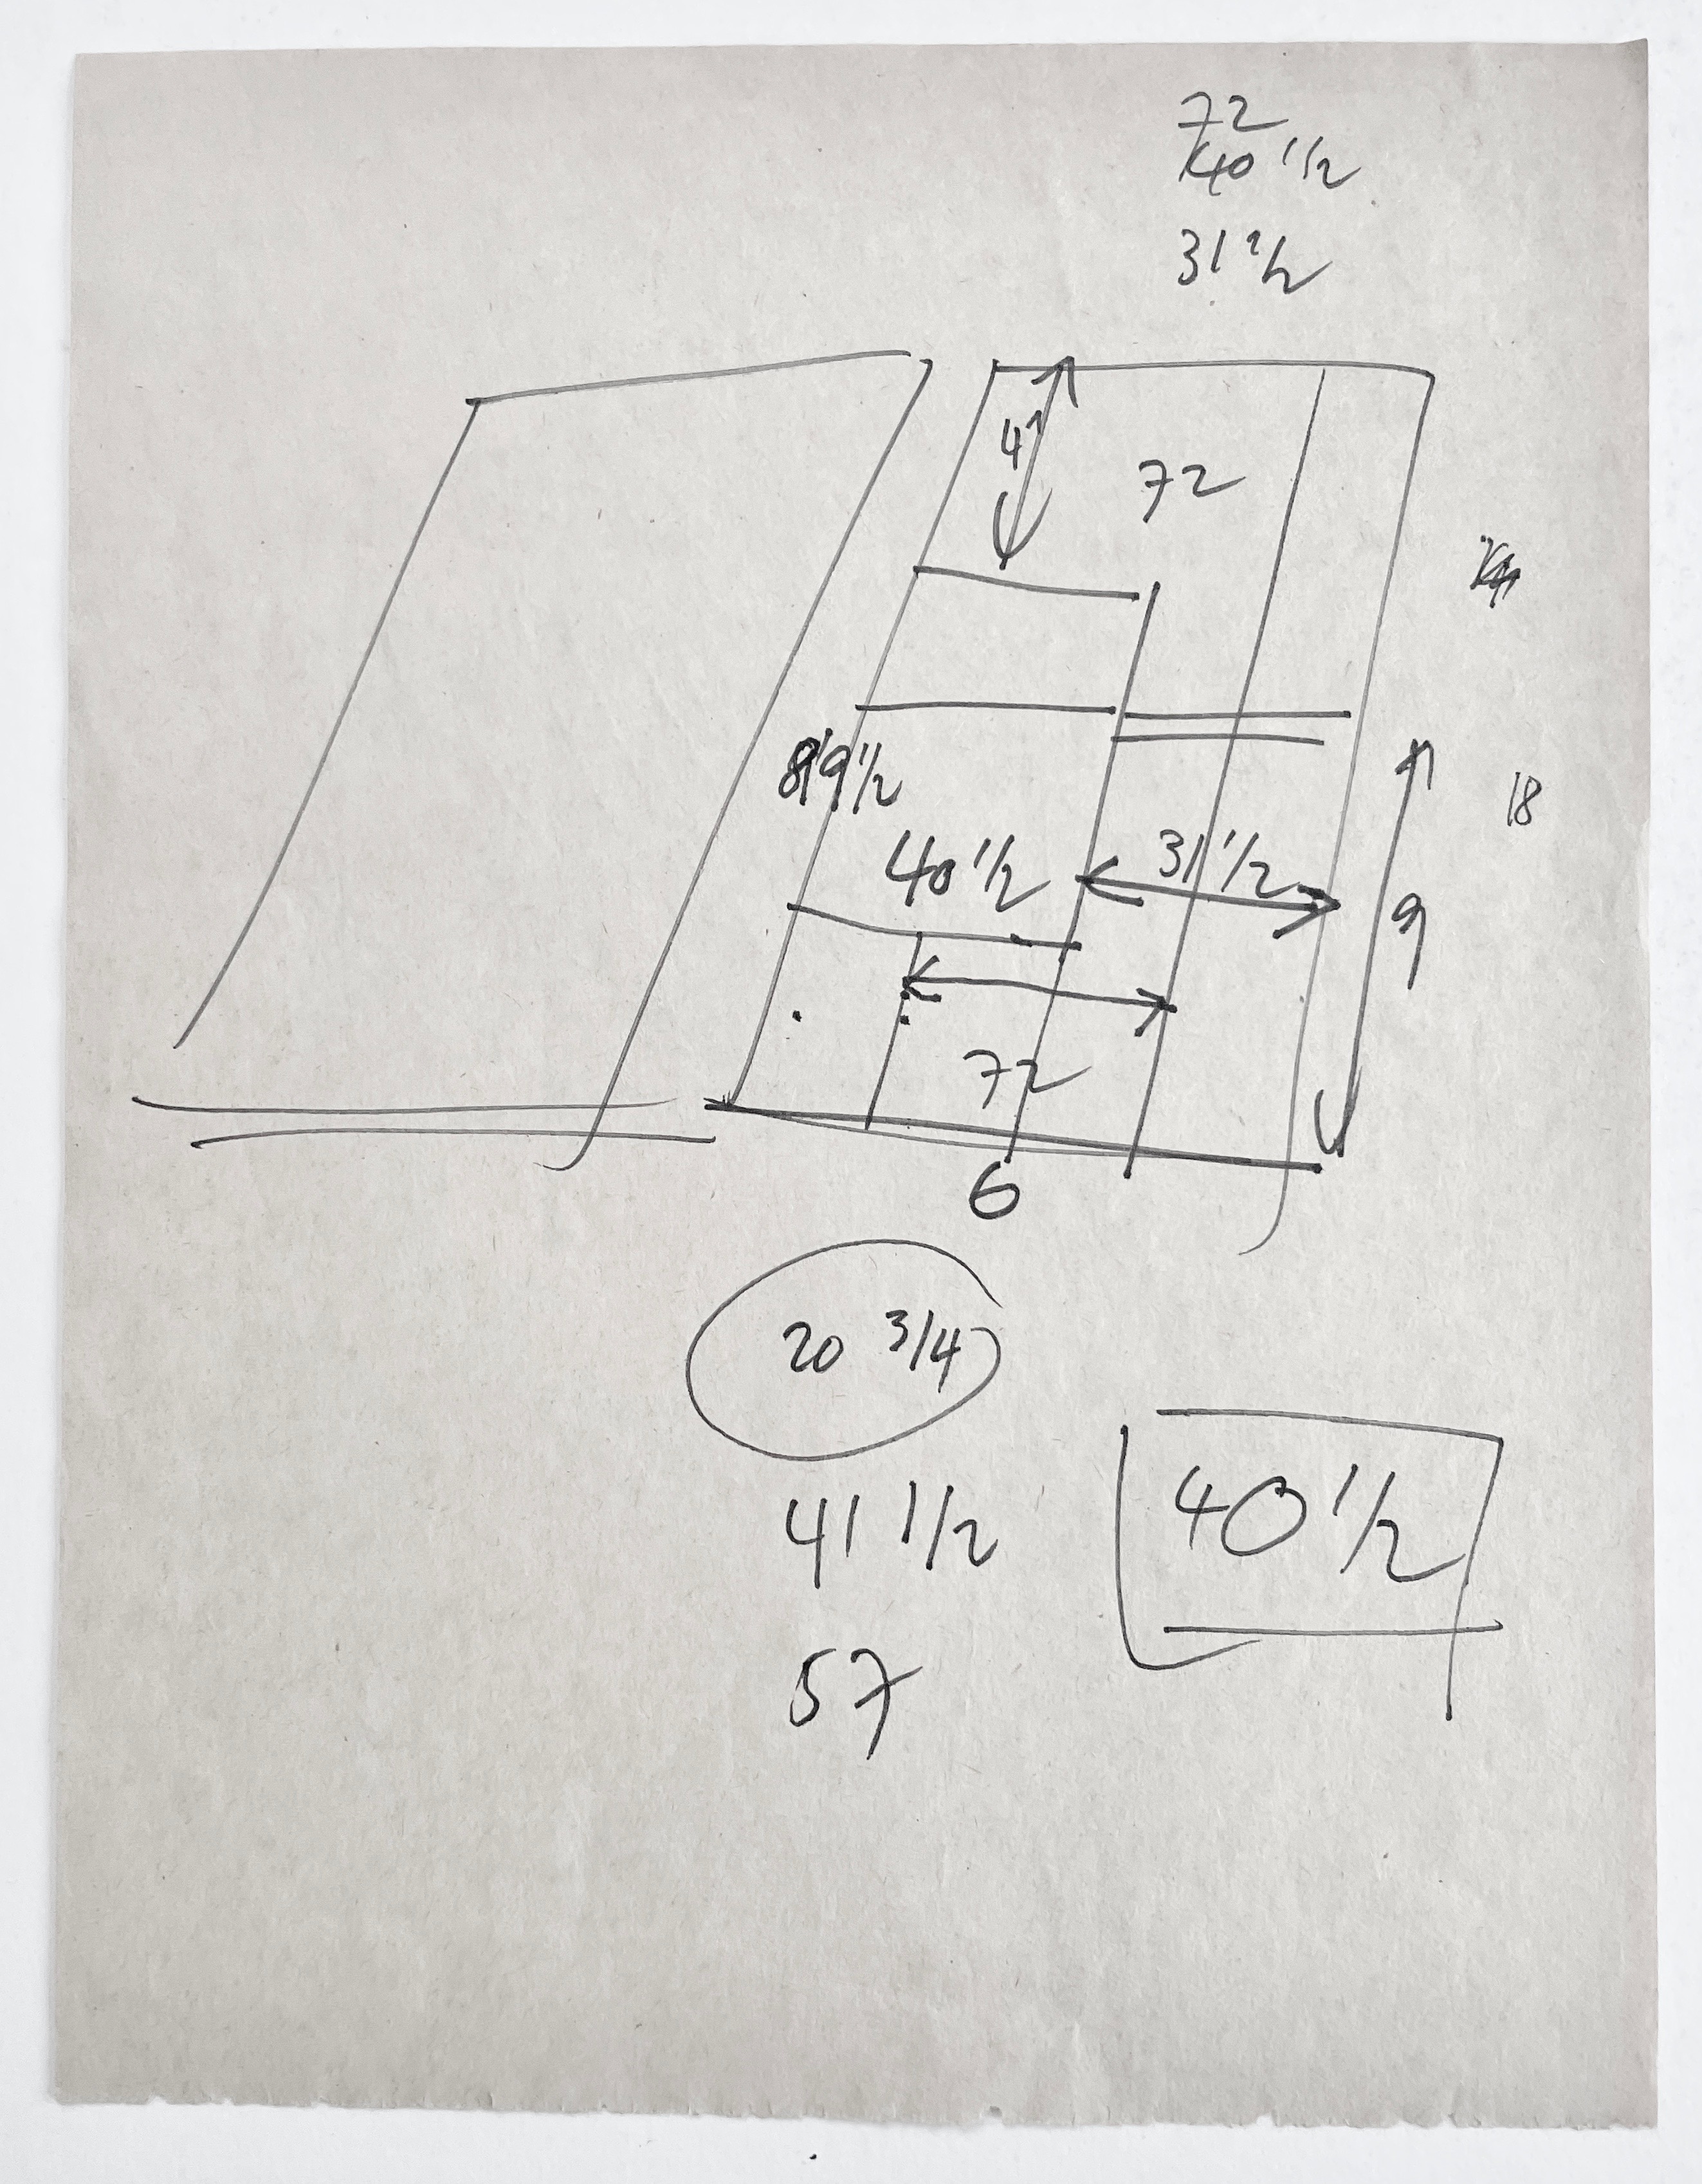 72
40 1/2
31 1/2
4'
72
18
9 1/2
40 1/2
31 1/2
9
72
6
20 3/4
41 1/2
40 1/2
57